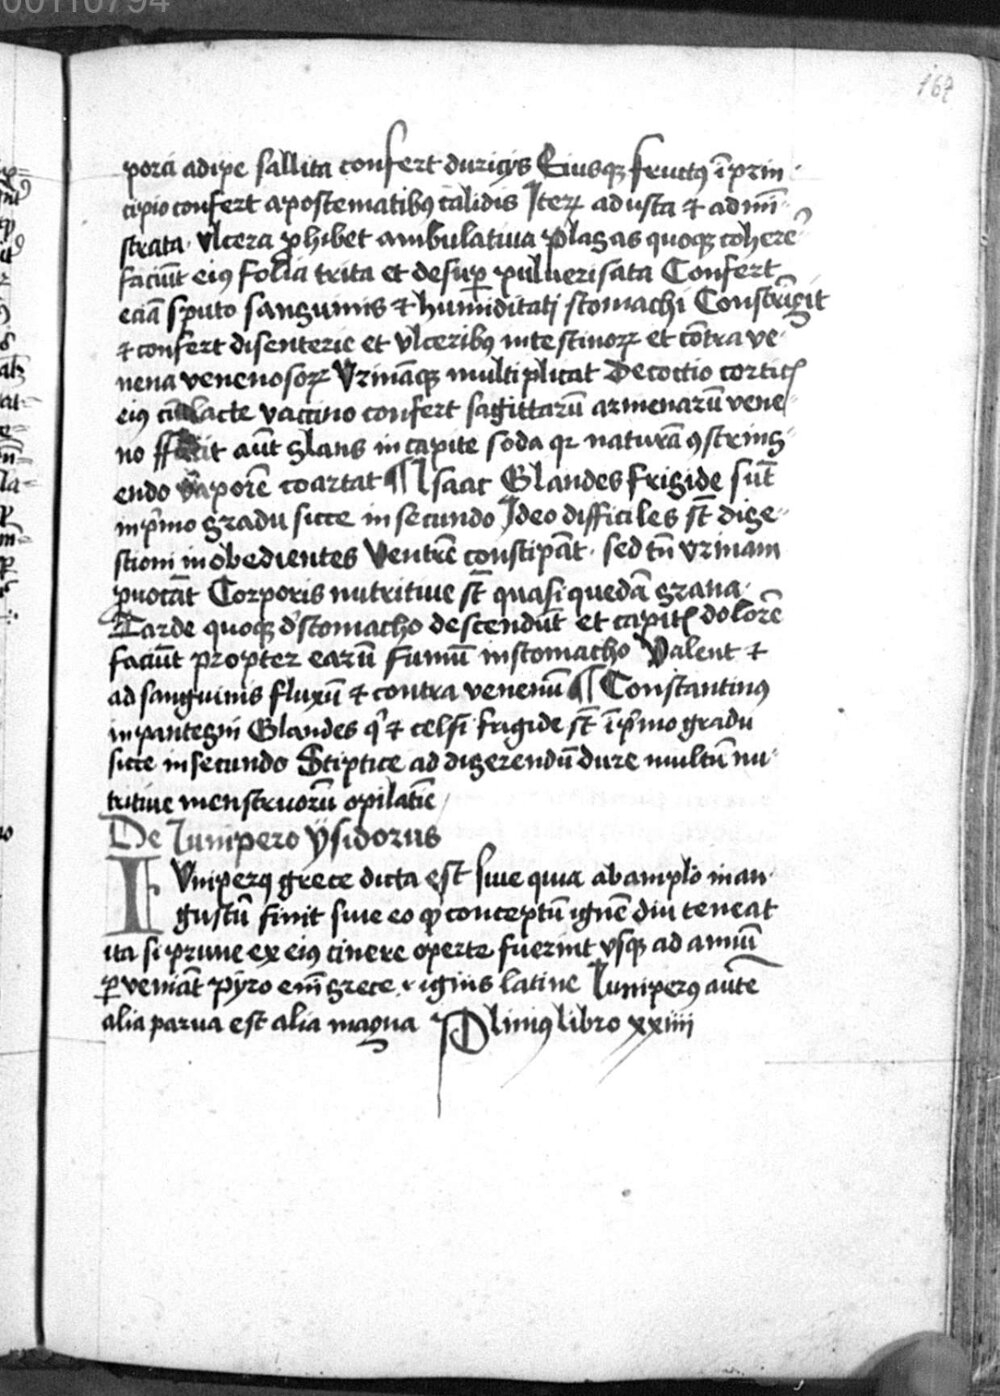 00110794
162
porci adipe sallita confert duricijs Eiusqꝫ fructꝰ ī prin
cipio confert apostematibꝰ calidis Iteꝝ adusta ⁊ admī
strata. Ulcera ꝓhibet ambulatiua plagas quoqꝫ coherē
faciūt eiꝰ folia trita et desuꝑ puluerisata Confert
eciā sputo sanguinis ⁊ humiditati stomachi Constrīgit
⁊ confert disenterie et vlceribꝰ intestinoꝝ et cōtra ve
nena venenosoꝝ Vrināqꝫ multiplicat Decoctio corticꝭ
eiꝰ cū lacte vaccino confert sagittarū armenarū vene
no aūt glans in capite soda qꝛ naturā ꝯstring
endo vaporē coartat ¶ Isaac Glandes frigide sūt
in pͥmo gradu sicce in secundo Ideo difficiles st̄ dige
stioni inobedientes Ventrē constipāt. sed tn̄ vrinam
ꝓuocāt Corporis nutritiue st̄ quasi quedā grana.
Tarde quoqꝫ d̓ stomacho descendūt et capitꝭ dolorē
faciūt propter earū fumū in stomacho Valent ⁊
ad sanguinis fluxū ⁊ contra venenū ¶ Constantinꝰ
in pantegni Glandes qͥ ⁊ celsi frigide st̄ ī pͥmo gradu
sicce in secundo Stiptice ad digerendū dure multū nu
tritiue menstruorū opilatiē
De Iunipero ysidorus
IVniperꝰ grece dicta est siue quia ab amplo in an
gustū finit siue eo ꝙ conceptū ignē diu teneat
ita si prune ex eiꝰ cinere operte fuerint vsqꝫ ad annū
ꝑveniāt pyro em̄ grece. ignis latine Iuniperꝰ autē
alia parua est alia magna Pliniꝰ libro xxiiii